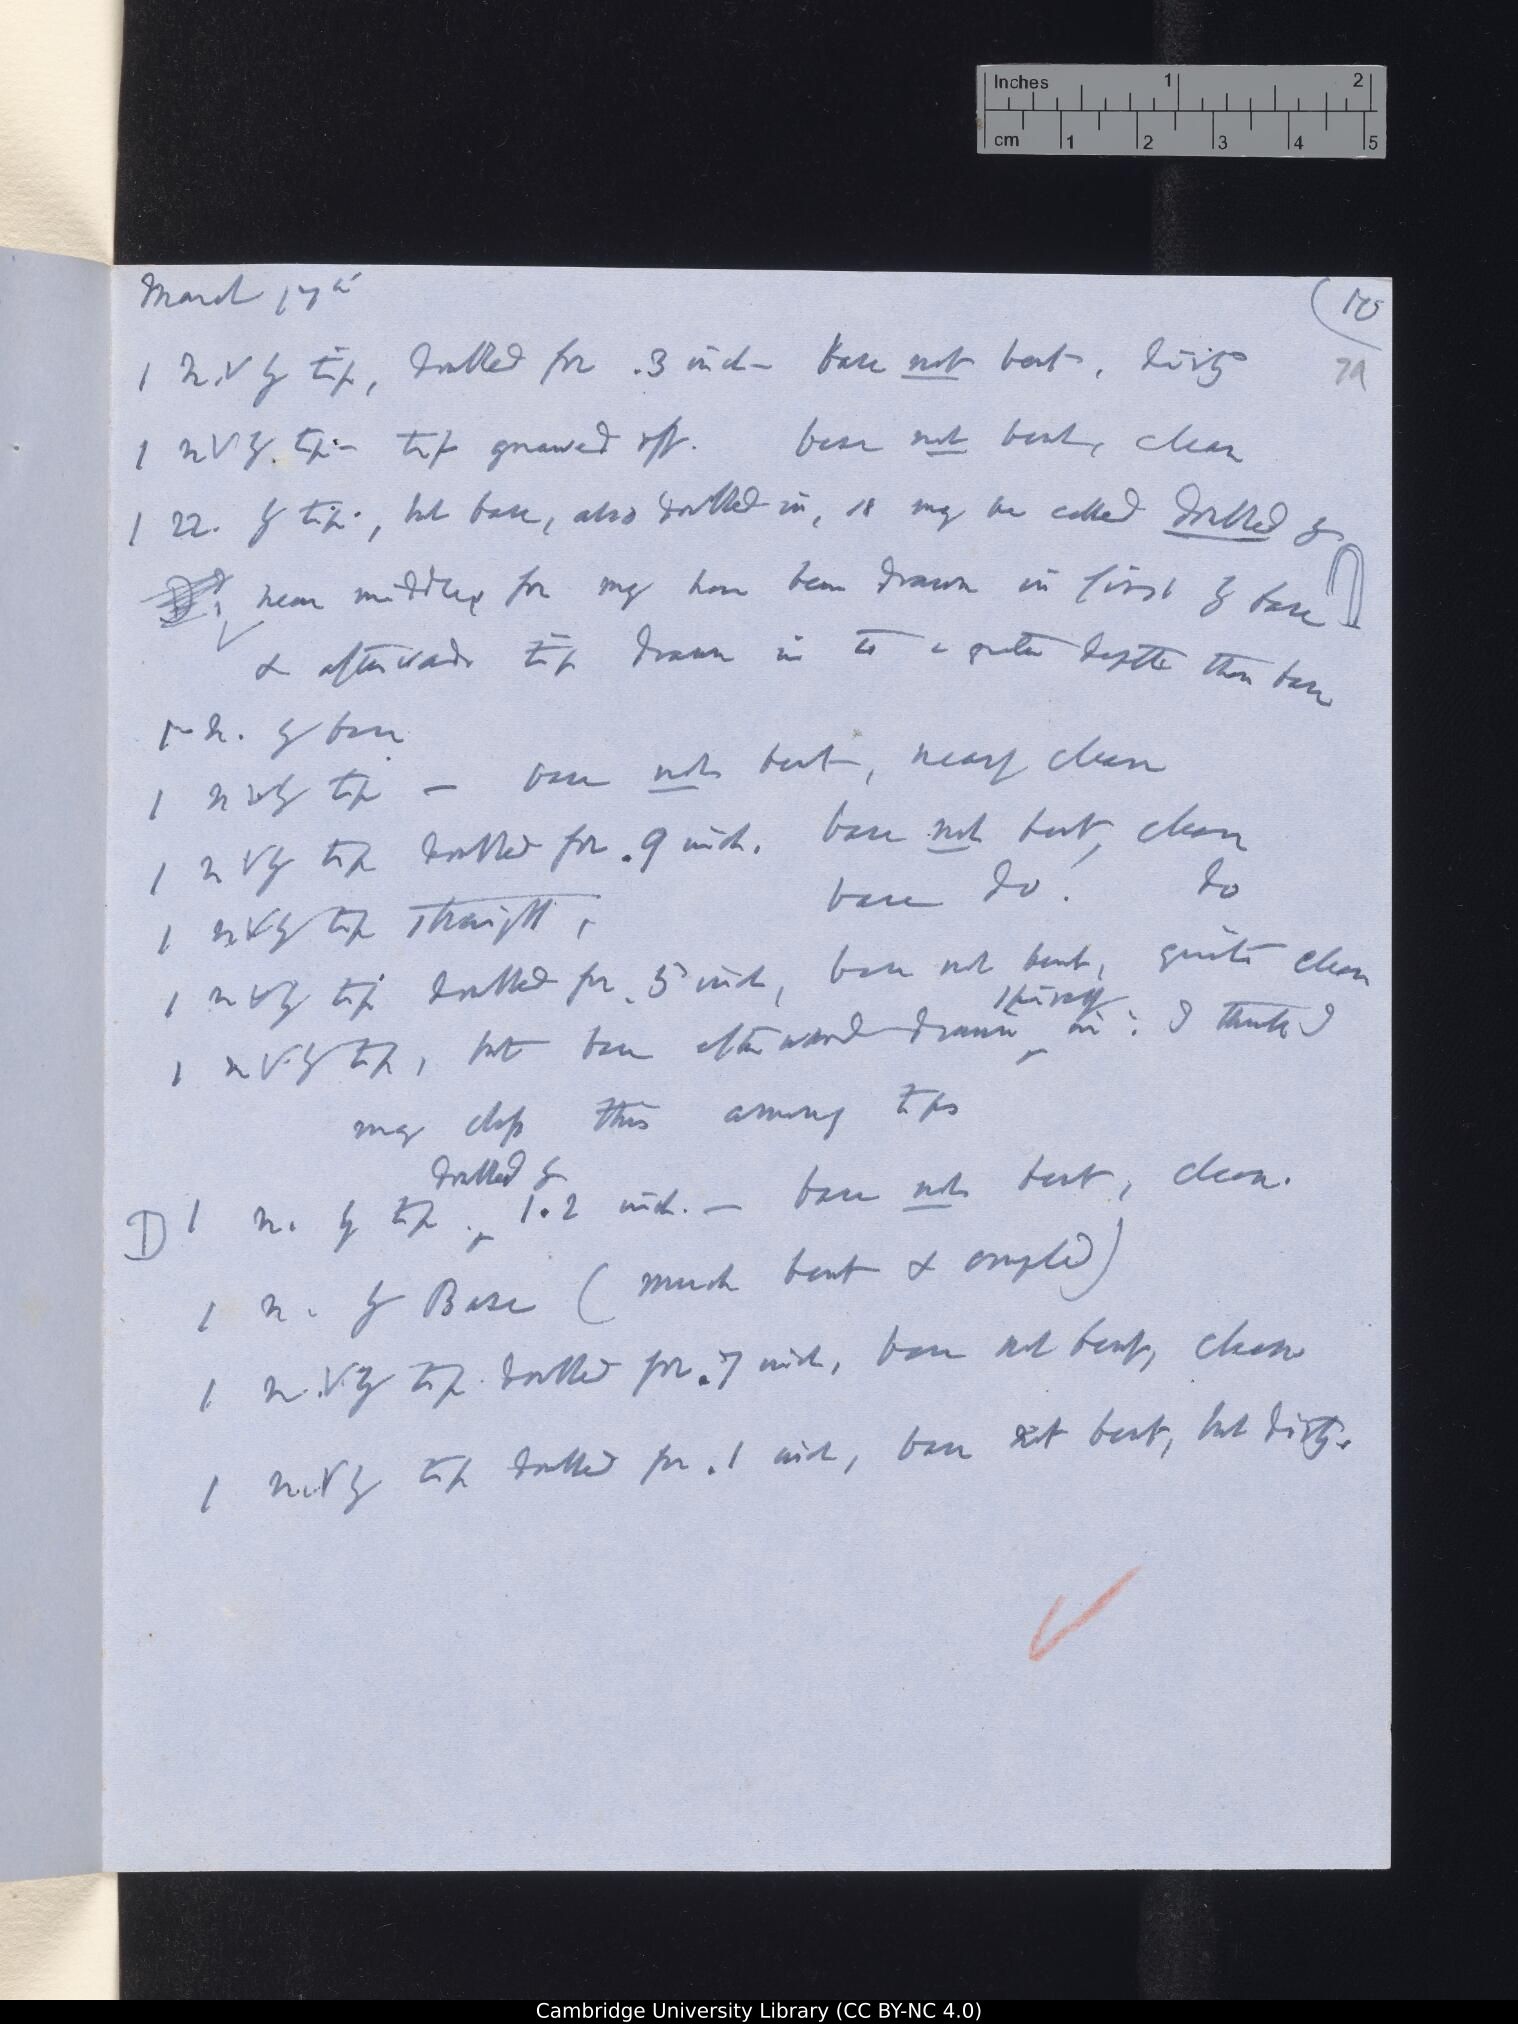 Inches 1 2
cm 1 2 3 4 5
March 17th
(10
79
1 n. V by tip, doubled for .3 inch – base not bent, dirty
1 n V by tip – tip gnawed off. base not bent, clean
1 by tip, but base, also doubled in, so may be called doubled by
near middle, for may have been drawn in first by base
& afterwards tip drawn in to a greater depth than base
1 n. by base
1 n V by tip – base not bent, nearly clean
1 n V by tip doubled for .9 inch. base not bent, clean
1 n V by tip straight, base do. do
1 n V by tip doubled for .5 inch, base not bent, quite clean
1 n V. by tip, but base afterward drawn in: I think I
may class this among tips
D 1 n. by tip doubled by 1.2 inch. – base not bent, clean.
1 n. by Base (much bent & crumpled)
1 n. V. by tip doubled for .7 inch, base not bent, clean
1 n. V by tip doubled for .1 inch, base not bent, but dirty.
Cambridge University Library (CC BY-NC 4.0)